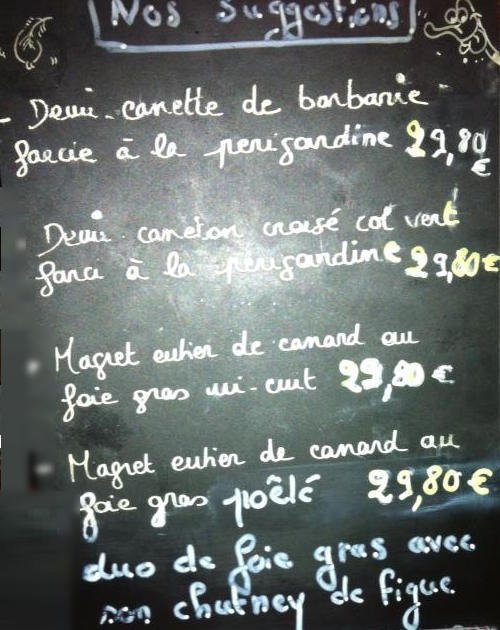 Nos suggestions
- Demi-canette de barbarie
farcie à la perigardine 29,80
€
Demi caneton croisé col vert
farci à la perigardine 29,80 €
Magret entier de canard au
foie gras mi-cuit 29,80 €
Magret entier de canard au
foie gras poêlé 29,80 €
duo de foie gras avec
son chutney de figue